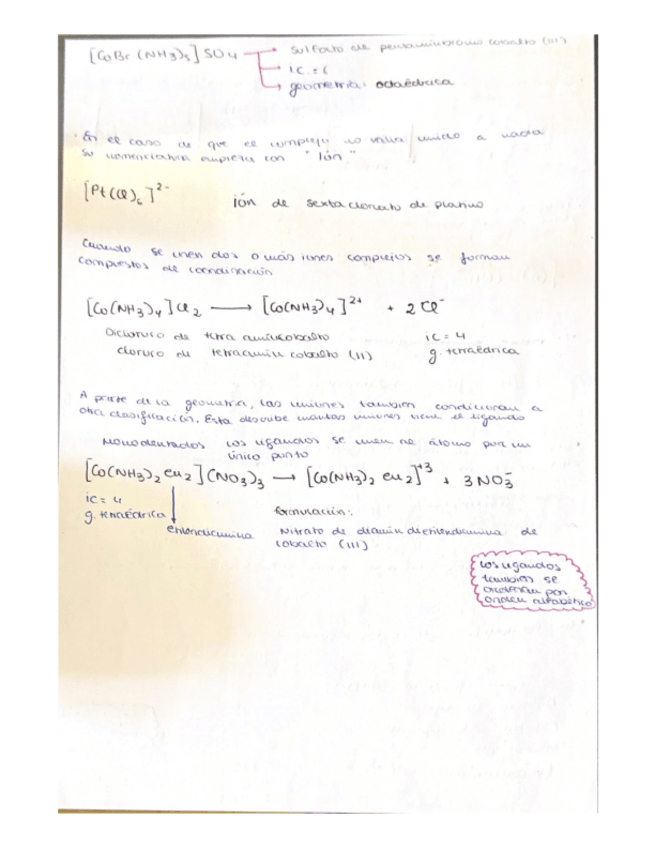 [CoBr (NH3)5] SO4 → sulfato de pentaminbromo cobalto (III)
→ ic = 6
→ geometría: octaédrica
En el caso de que el complejo no unido a nada
su nomenclatura empieza con "Ión"
[Pt(Cl)6]2- ión de sextaclorato de platino
Cuando se unen dos o más iones complejos se forman
compuestos de coordinación
[Co(NH3)4]Cl2 → [Co(NH3)4]2+ + 2Cl-
Dicloruro de tetra cobalto ic = 4
cloruro de tetracamin cobalto (II) g. tetraédrica
A parte de la geometría, las uniones también condicionan a
otra clasificación. Esta describe cuantas uniones tiene el ligando
Monodentados los ligandos se unen al átomo por un
único punto
[Co(NH3)2 en2](NO3)3 → [Co(NH3)2 en2]+3 + 3NO3-
ic = 4
g. tetraédrica formulación:
etilendiamina Nitrato de diamin dietilendiamina de
cobalto (III)
Los ligandos
también se
ordenan por
orden alfabético